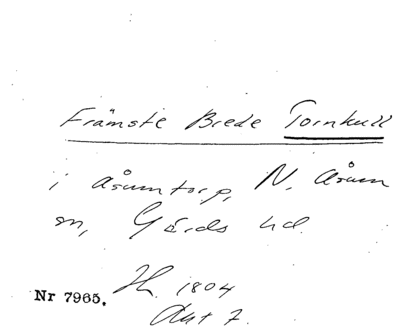 Främste Brede Tornkull
i Åsumtorp, N. Åsum
sn, Gärds hd.
H. 1804
Nr 7965.
Akt 7.